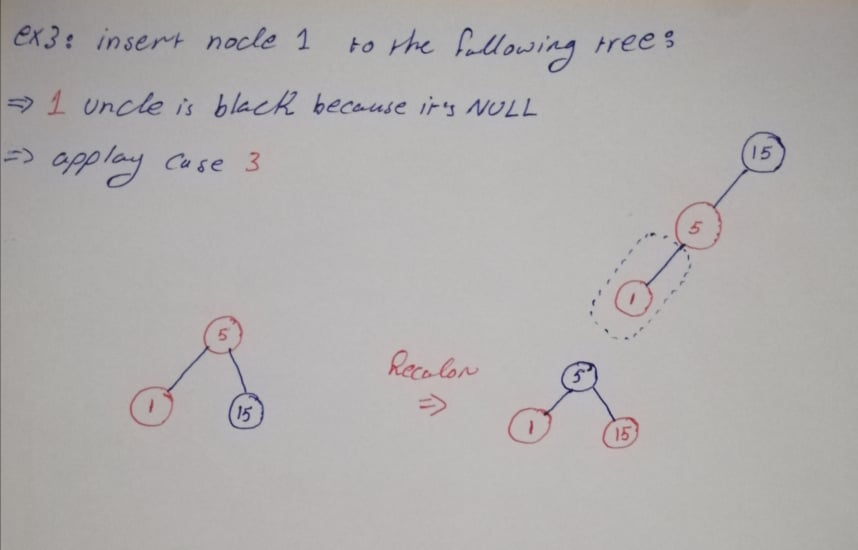 ex3: insert node 1 to the following tree:
=> 1 uncle is black because it's NULL
=> applay case 3
15
5
1
5
1
15
Recolor
=>
5
1
15